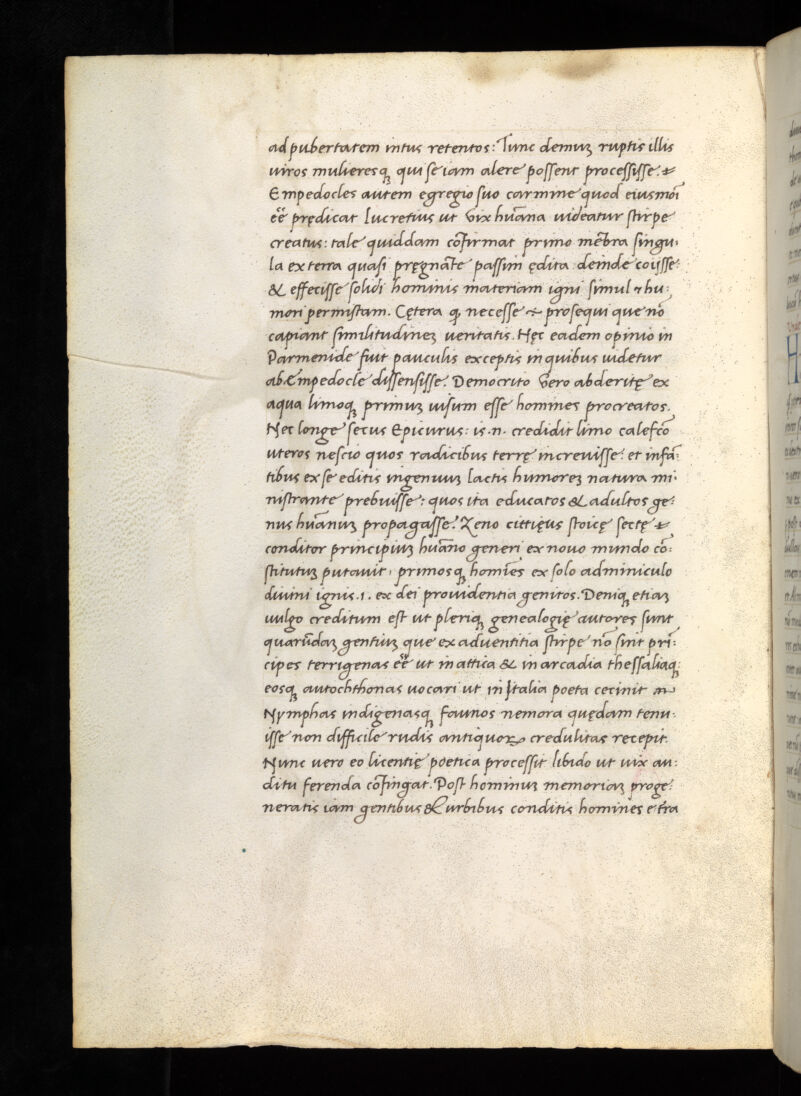 ad pubertatem intus retentos: Tunc demuꝫ ruptis illis
uiros mulieresqꝫ qui se iam alere possent processisse.
Empedocles autem egregio suo carmine quod eiusmōi
ēē prędicat lucretius ut vix hūana uideatur stirpe
creatus: tale quiddam cōfirmat primo mēbra singu-
la ex terra quasi pręgnāte passim ędita deinde coijsse:
& effecisse solidi hominis materiam igni simul ⁊ hu-
mori permistam. Cętera q, necesse ÷ prosequi que nō
capiant similitudineꝫ ueritatis. Hęc eadem opinio in
Parmenide fuit pauculis exceptis in quibus uidetur
ab Empedocle dissensisse. Democrito vero abderitę ex
aqua limoqꝫ primuꝫ uisum esse homines procreatos.
Nec longe secus Epicurus: is .n. credidit limo calefcō
uteros nescio quos radicibus terrę increuisse: et infā-
tibus ex se editis ingenuuꝫ lactis humoreꝫ natura mi-
nistrante prebuisse: quos ita educatos & adultos ge-
nus hūanuꝫ propagasse. Zeno cittięus stoicę sectę
conditor principiuꝫ hūano generi ex nouo mundo cō-
stitutuꝫ putauit, primosqꝫ homīes ex solo adminiculo
diuini ignis .i. ex dei prouidentia genitos. Deniqꝫ etiaꝫ
uulgo creditum est ut pleriqꝫ genealogię autores sunt
quarūdaꝫ gentiuꝫ que ex aduentitia stirpe nō sint pri-
cipes terrigenas ēē ut in attica & in arcadia thessaliaqꝫ
eosqꝫ autochthonas uocari ut in Italia poeta cecinit
Nymphas indigenasqꝫ faunos nemora quędam tenu-
isse non difficile rudis antiquoꝝ credulitas recepit.
Nunc uero eo licentię poetica processit libido ut uix au-
ditu ferenda cōfingat. Post hominuꝫ memoriaꝫ proge-
neratis iam gentibus & urbibus conditis homines e trā